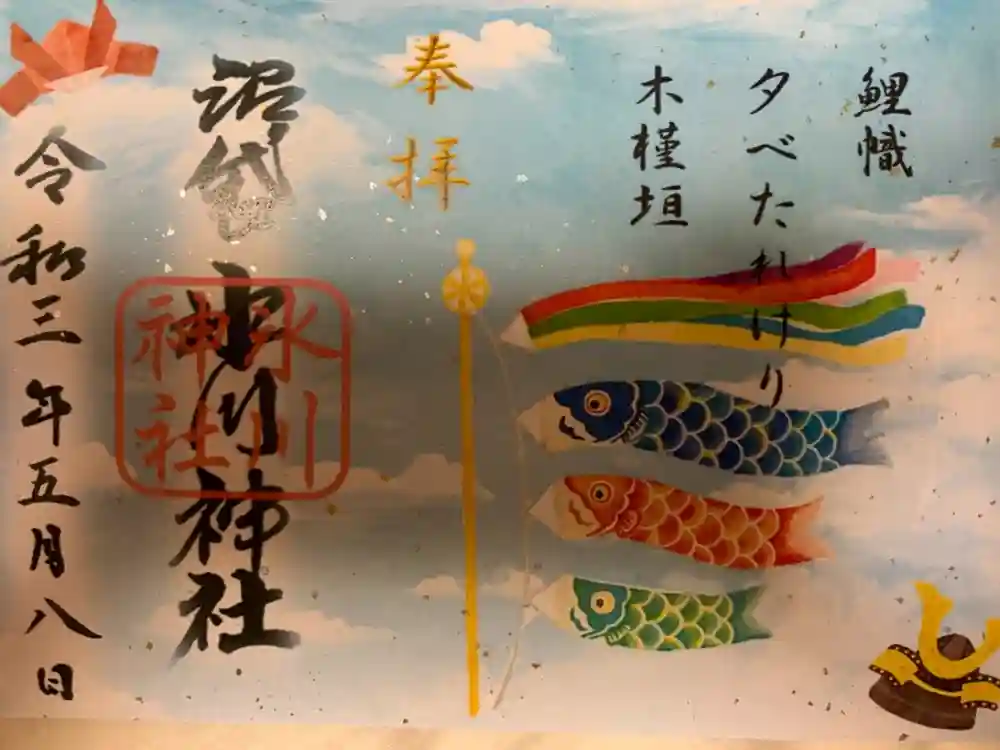 鯉幟
夕べたれけり
木槿垣
奉拝
沼袋氷川神社
氷川
神社
令和三年五月八日